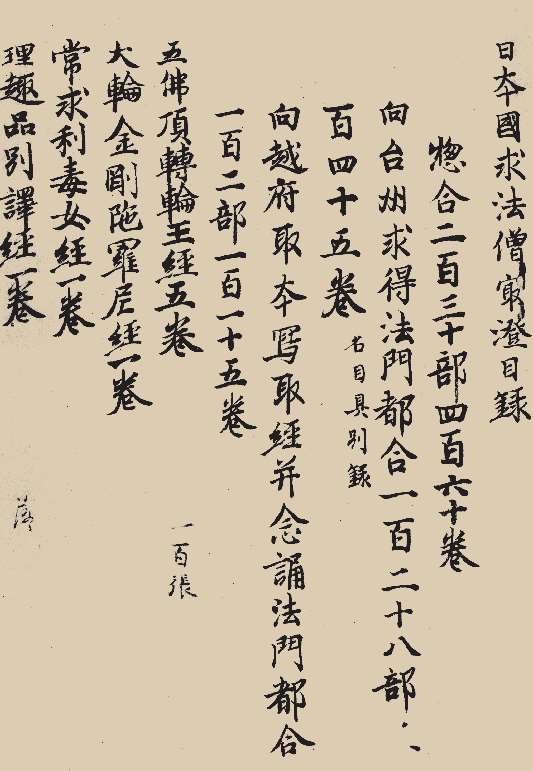 日本國求法僧最澄目錄
惣合二百三十部四百六十卷
向台州求得法門都合一百二十八部、
百四十五卷 名目具別錄
向越府取本寫取經并念誦法門都合
一百二部一百一十五卷
五佛頂轉輪王經五卷 一百張
大輪金剛陁羅尼經一卷
常求利毒女經一卷
理趣品別譯經一卷